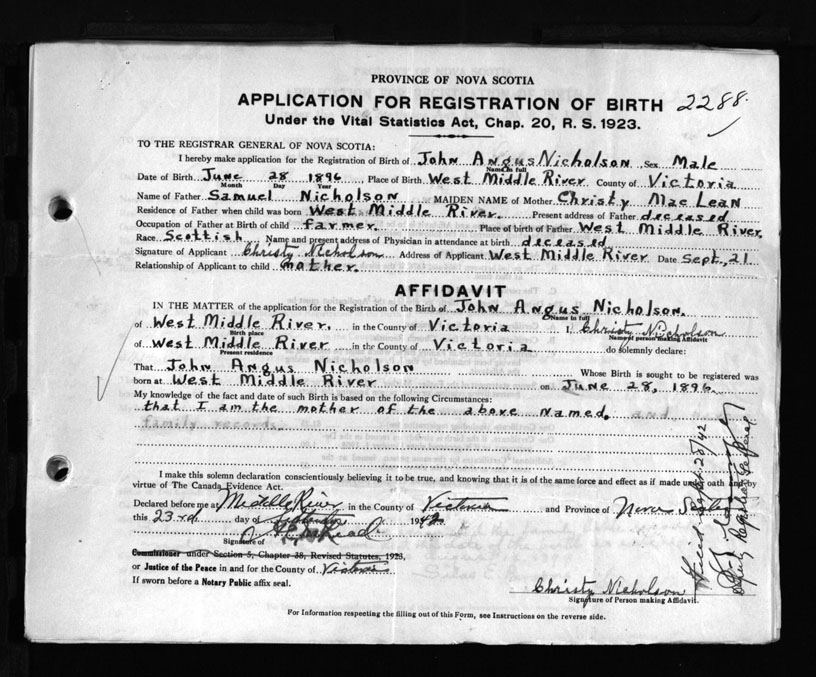 PROVINCE OF NOVA SCOTIA
APPLICATION FOR REGISTRATION OF BIRTH 2288.
Under the Vital Statistics Act, Chap. 20, R. S. 1923.
TO THE REGISTRAR GENERAL OF NOVA SCOTIA:
I hereby make application for the Registration of Birth of John Angus Nicholson Sex Male
Name in full
Date of Birth June 28 1896 Place of Birth West Middle River County of Victoria
Month Day Year
Name of Father Samuel Nicholson MAIDEN NAME of Mother Christy Mac Lean
Residence of Father when child was born West Middle River. Present address of Father deceased
Occupation of Father at Birth of child farmer. Place of birth of Father West Middle River.
Race Scottish Name and present address of Physician in attendance at birth deceased
Signature of Applicant Christy Nicholson Address of Applicant West Middle River Date Sept, 21
Relationship of Applicant to child mother.
AFFIDAVIT
IN THE MATTER of the application for the Registration of the Birth of John Angus Nicholson.
Name in full
of West Middle River, in the County of Victoria I, Christy Nicholson
Birth place Name of person making Affidavit
of West Middle River in the County of Victoria do solemnly declare:
Present residence
That John Angus Nicholson Whose Birth is sought to be registered was
born at West Middle River on June 28, 1896
My knowledge of the fact and date of such Birth is based on the following Circumstances:
that I am the mother of the above named. and
family records.
I make this solemn declaration conscientiously believing it to be true, and knowing that it is of the same force and effect as if made under oath and by
virtue of The Canada Evidence Act.
Declared before me at Middle River in the County of Victoria and Province of Nova Scotia
this 23rd day of September 1942
Signature of
Commissioner under Section 5, Chapter 38, Revised Statutes, 1923,
or Justice of the Peace in and for the County of Victoria
If sworn before a Notary Public affix seal.
Christy Nicholson
Signature of Person making Affidavit.
For Information respecting the filling out of this Form, see Instructions on the reverse side.
Filed Sept 25/42
Deputy Registrar General